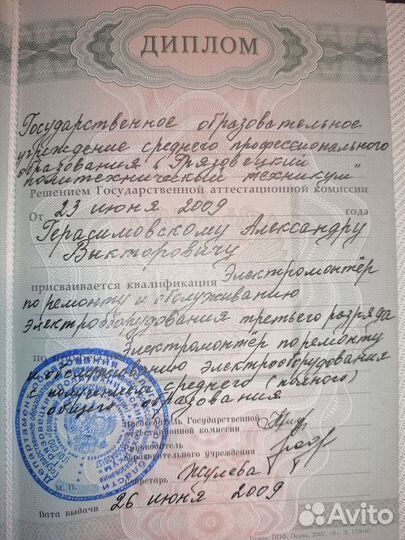 ДИПЛОМ
Государственное образовательное
учреждение среднего профессионального
образования "Грязовецкий
политехнический техникум"
Решением Государственной аттестационной комиссии
От 23 июня 2009 года
Герасимовскому Александру
Викторовичу
присваивается квалификация Электромонтёр
по ремонту и обслуживанию
электрооборудования третьего разряда
по Электромонтёр по ремонту
и обслуживанию электрооборудования
с получением среднего (полного)
общего образования
Председатель Государственной
аттестационной комиссии
образовательного учреждения
Секретарь Жулева
М.П.
Дата выдачи 26 июня 2009
Avito